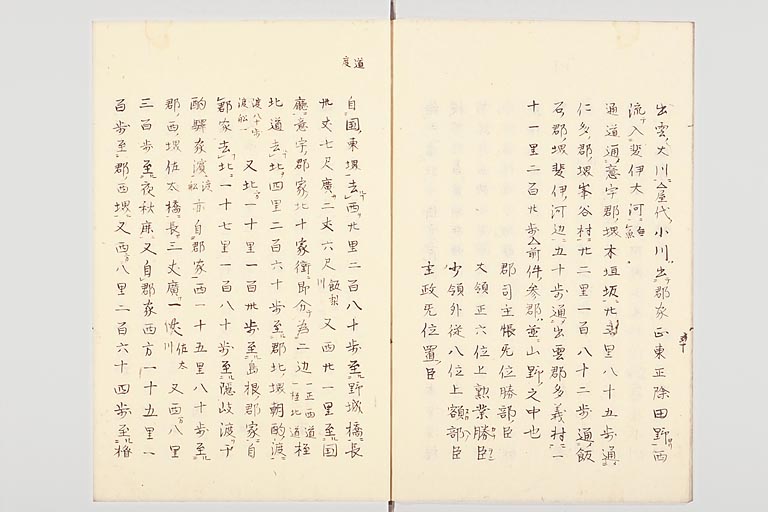 出雲大川屋代小川出郡家正東正除田野西
流入斐伊大河有年魚
通道通意宇郡堺木垣坂廿三里八十五歩通
仁多郡堺峯谷村廿二里一百八十二歩通飯
石郡堺斐伊河辺五十歩通出雲郡多義村一
十一里二百廿歩前件参郡並山野之中也
郡司主帳无位勝部臣
大領正六位上勲業勝臣
少領外従八位上額部臣
主政无位置臣
道度
自国東堺去西廿里二百八十歩至野城橋長
卅丈七尺廣二丈六尺飯梨川又西廿一里至国
廳意宇郡家北十家衢即分為二边一正西道一枉北道枉
北道去北四里二百六十歩至郡北堺朝酌渡
渡八十歩渡船一又北一十里一百卌歩至島根郡家自
郡家去北一十七里一百八十歩至隠岐渡千
酌驛家濱渡船亦自郡家西一十五里八十歩至
郡西堺佐太橋長三丈廣一丈佐太川又西八里
三百歩至秋鹿又自郡家西方一十五里一
百歩至郡西堺又西八里二百六十四歩至楯